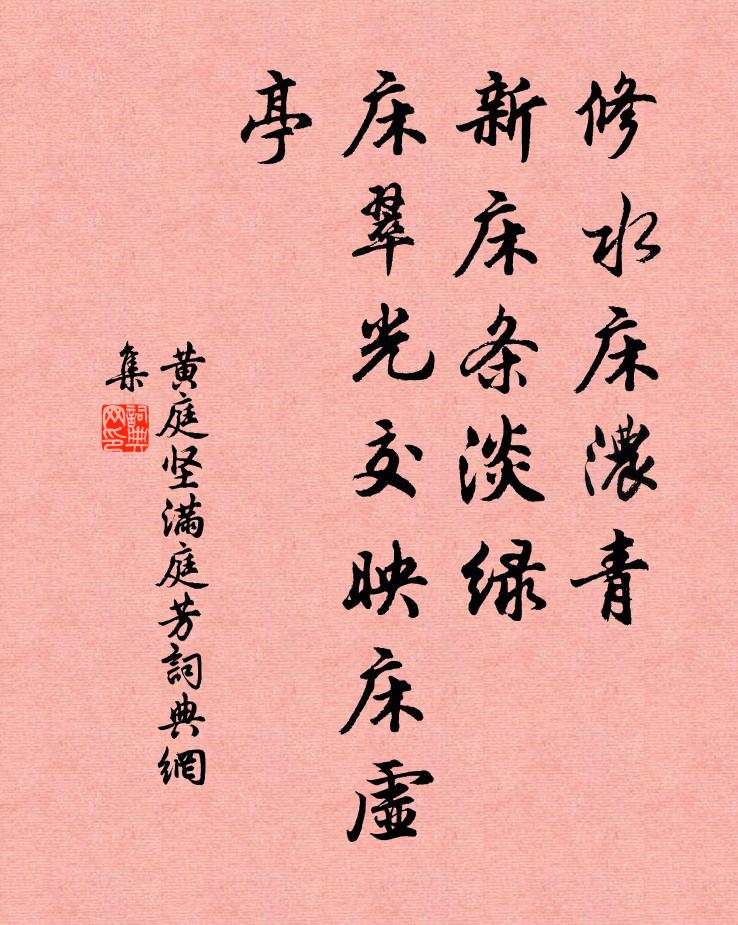 修水床濃青
新床条淡绿
床翠光交映床虚
亭
黄庭坚满庭芳詞典網
集
詞典网印